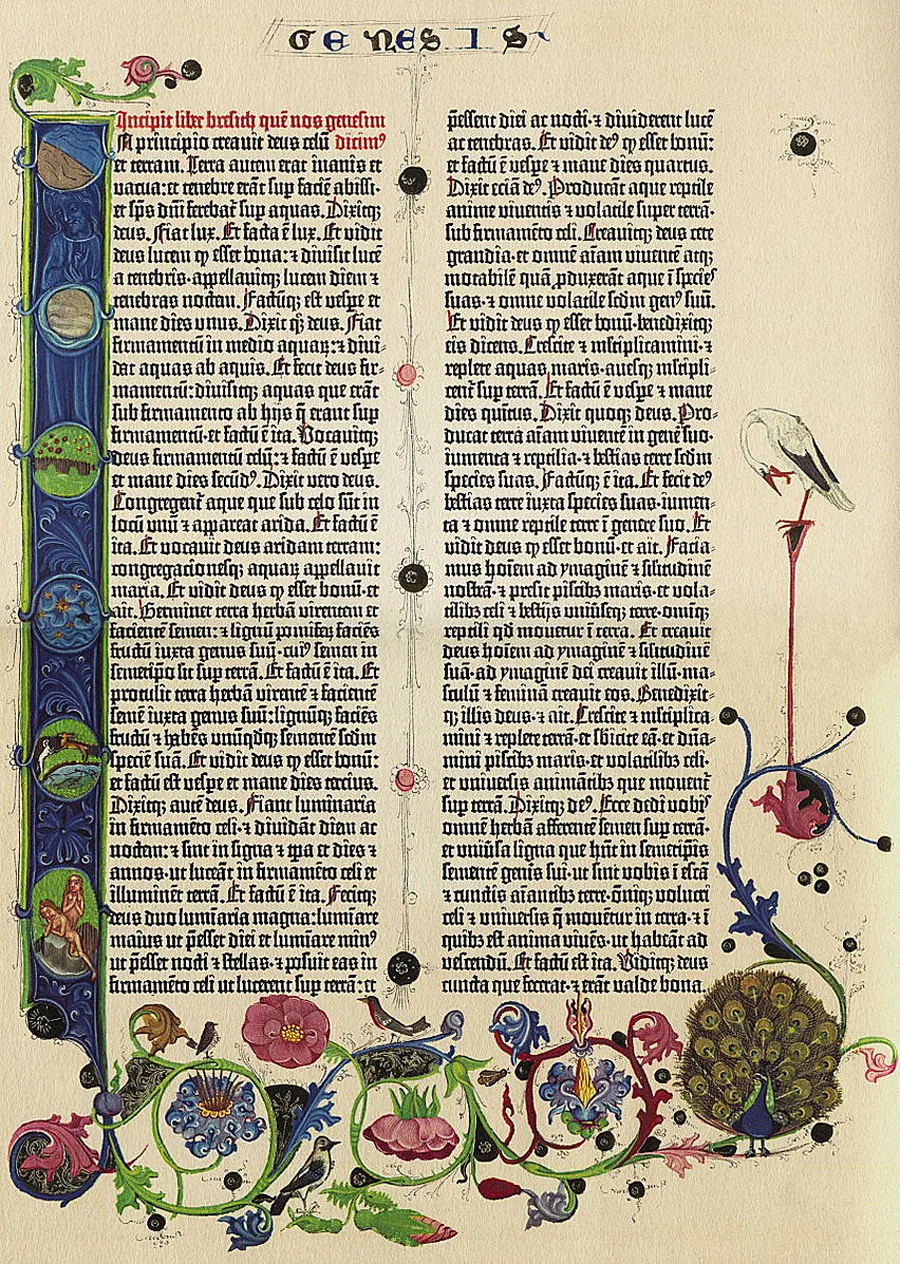 GENESIS
Incipit liber bresith quē nos genesim
In principio creauit deus celū dicimꝰ
et terram. Terra autem erat inanis et
vacua: et tenebre erāt sup faciē abissi·
et sp̄s dn̄i ferebat̄ sup aquas. Dixitq;
deus. Fiat lux. Et facta ē lux. Et vidit
deus lucem ꝙ esset bona: ⁊ diuisit lucē
a tenebris·appellauitq; lucem diem ⁊
tenebras noctem. Factūq; est vespe et
mane dies vnus. Dixit qꝫ deus. Fiat
firmamentū in medio aquaꝝ: ⁊ diui-
dat aquas ab aquis. Et fecit deus fir-
mamentū: diuisitq; aquas que erāt
sub firmamento ab hijs q̄ erant sup
firmamentū·et factū ē ita. Vocauitq;
deus firmamentū celū: ⁊ factū ē vespe
et mane dies secūdꝰ. Dixit vero deus.
Congregent̄ aque que sub celo sūt in
locū vnū ⁊ appareat arida. Et factū ē
ita. Et vocauit deus aridam terram:
congregacionesq; aquaꝝ appellauit
maria. Et vidit deus ꝙ esset bonū·et
ait. Germinet terra herbā virentem et
facientē semen: ⁊ lignū pomifeꝝ faciēs
fructū iuxta genus suū·cuiꝰ semen in
semetip̄o sit sup terrā. Et factū ē ita. Et
protulit terra herbā virentē ⁊ facientē
semē iuxta genus suū: lignūq; faciēs
fructū ⁊ habēs vnūqdq; sementē scdm
speciē suā. Et vidit deus ꝙ esset bonū:
et factū est vespe et mane dies tercius.
Dixitq; autē deus. Fiant luminaria
in firmamēto celi·⁊ diuidāt diem ac
noctem: ⁊ sint in signa ⁊ tp̄a et dies ⁊
annos·ut luceāt in firmamēto celi et
illuminēt terrā. Et factū ē ita. Fecitq;
deus duo lumīaria magna: lumīare
maius ut p̄esset diei et lumīare minꝰ
ut p̄esset nocti ⁊ stellas·⁊ posuit eas in
firmamēto celi ut lucerent sup terrā: et
p̄essent diei ac nocti·⁊ diuiderent lucē
ac tenebras. Et vidit deꝰ ꝙ esset bonū:
et factū ē vespe ⁊ mane dies quartus.
Dixit eciā deꝰ. Producāt aque reptile
anime viventis ⁊ volatile super terrā·
sub firmamēto celi. Creauitq; deus cete
grandia·et omnē aīam viventē atq;
motabilē quā ꝓduxerāt aque ī speciesͤ
suas·⁊ omne volatile scdm genꝰ suū.
Et vidit deus ꝙ esset bonū·benedixitq;
eis dicens. Crescite ⁊ mltiplicamini·⁊
replete aquas maris·auesq; mltipli-
cent̄ sup terrā. Et factū ē vespe ⁊ mane
dies quītus. Dixit quoq; deus. Pro-
ducat terra aīam viventē in genē suo·
iumenta ⁊ reptilia·⁊ bestias terre scdm
species suas. Factūq; ē ita. Et fecit deꝰ
bestias terre iuxta species suas·iumen-
ta ⁊ omne reptile terre ī genere suo. Et
vidit deus ꝙ esset bonū·et ait. Facia-
mus hoīem ad ymaginē ⁊ silitudinē
nostrā·⁊ presit piscibꝫ maris·et vola-
tilibꝫ celi ⁊ bestijs vniūseq; terre·omīq;
reptili qd mouetur ī terra. Et creauit
deus hoīem ad ymaginē ⁊ silitudinē
suā·ad ymaginē dei creauit illū·ma-
sculū ⁊ feminā creauit eos. Benedixit-
q; illis deus·⁊ ait. Crescite ⁊ mltiplica-
mini ⁊ replete terrā·et sbicite eā·et dn̄a-
mini piscibꝫ maris·et volatilibꝫ celi·
et vniuersis animātibꝫ que mouent̄
sup terrā. Dixitq; deꝰ. Ecce dedi vobis
omnē herbā afferentē semen sup terrā·
et vniūsa ligna que hn̄t in semetip̄is
sementē genis sui·ut sint vobis ī escā
⁊ cunctis aīantibꝫ terre·om̄iq; volucri
celi ⁊ vniuersis q̄ mouētur in terra·⁊ ī
quibꝫ est anima vivēs·ut habeāt ad
vescendū. Et factū est ita. Viditq; deus
cuncta que fecerat·⁊ erāt valde bona.